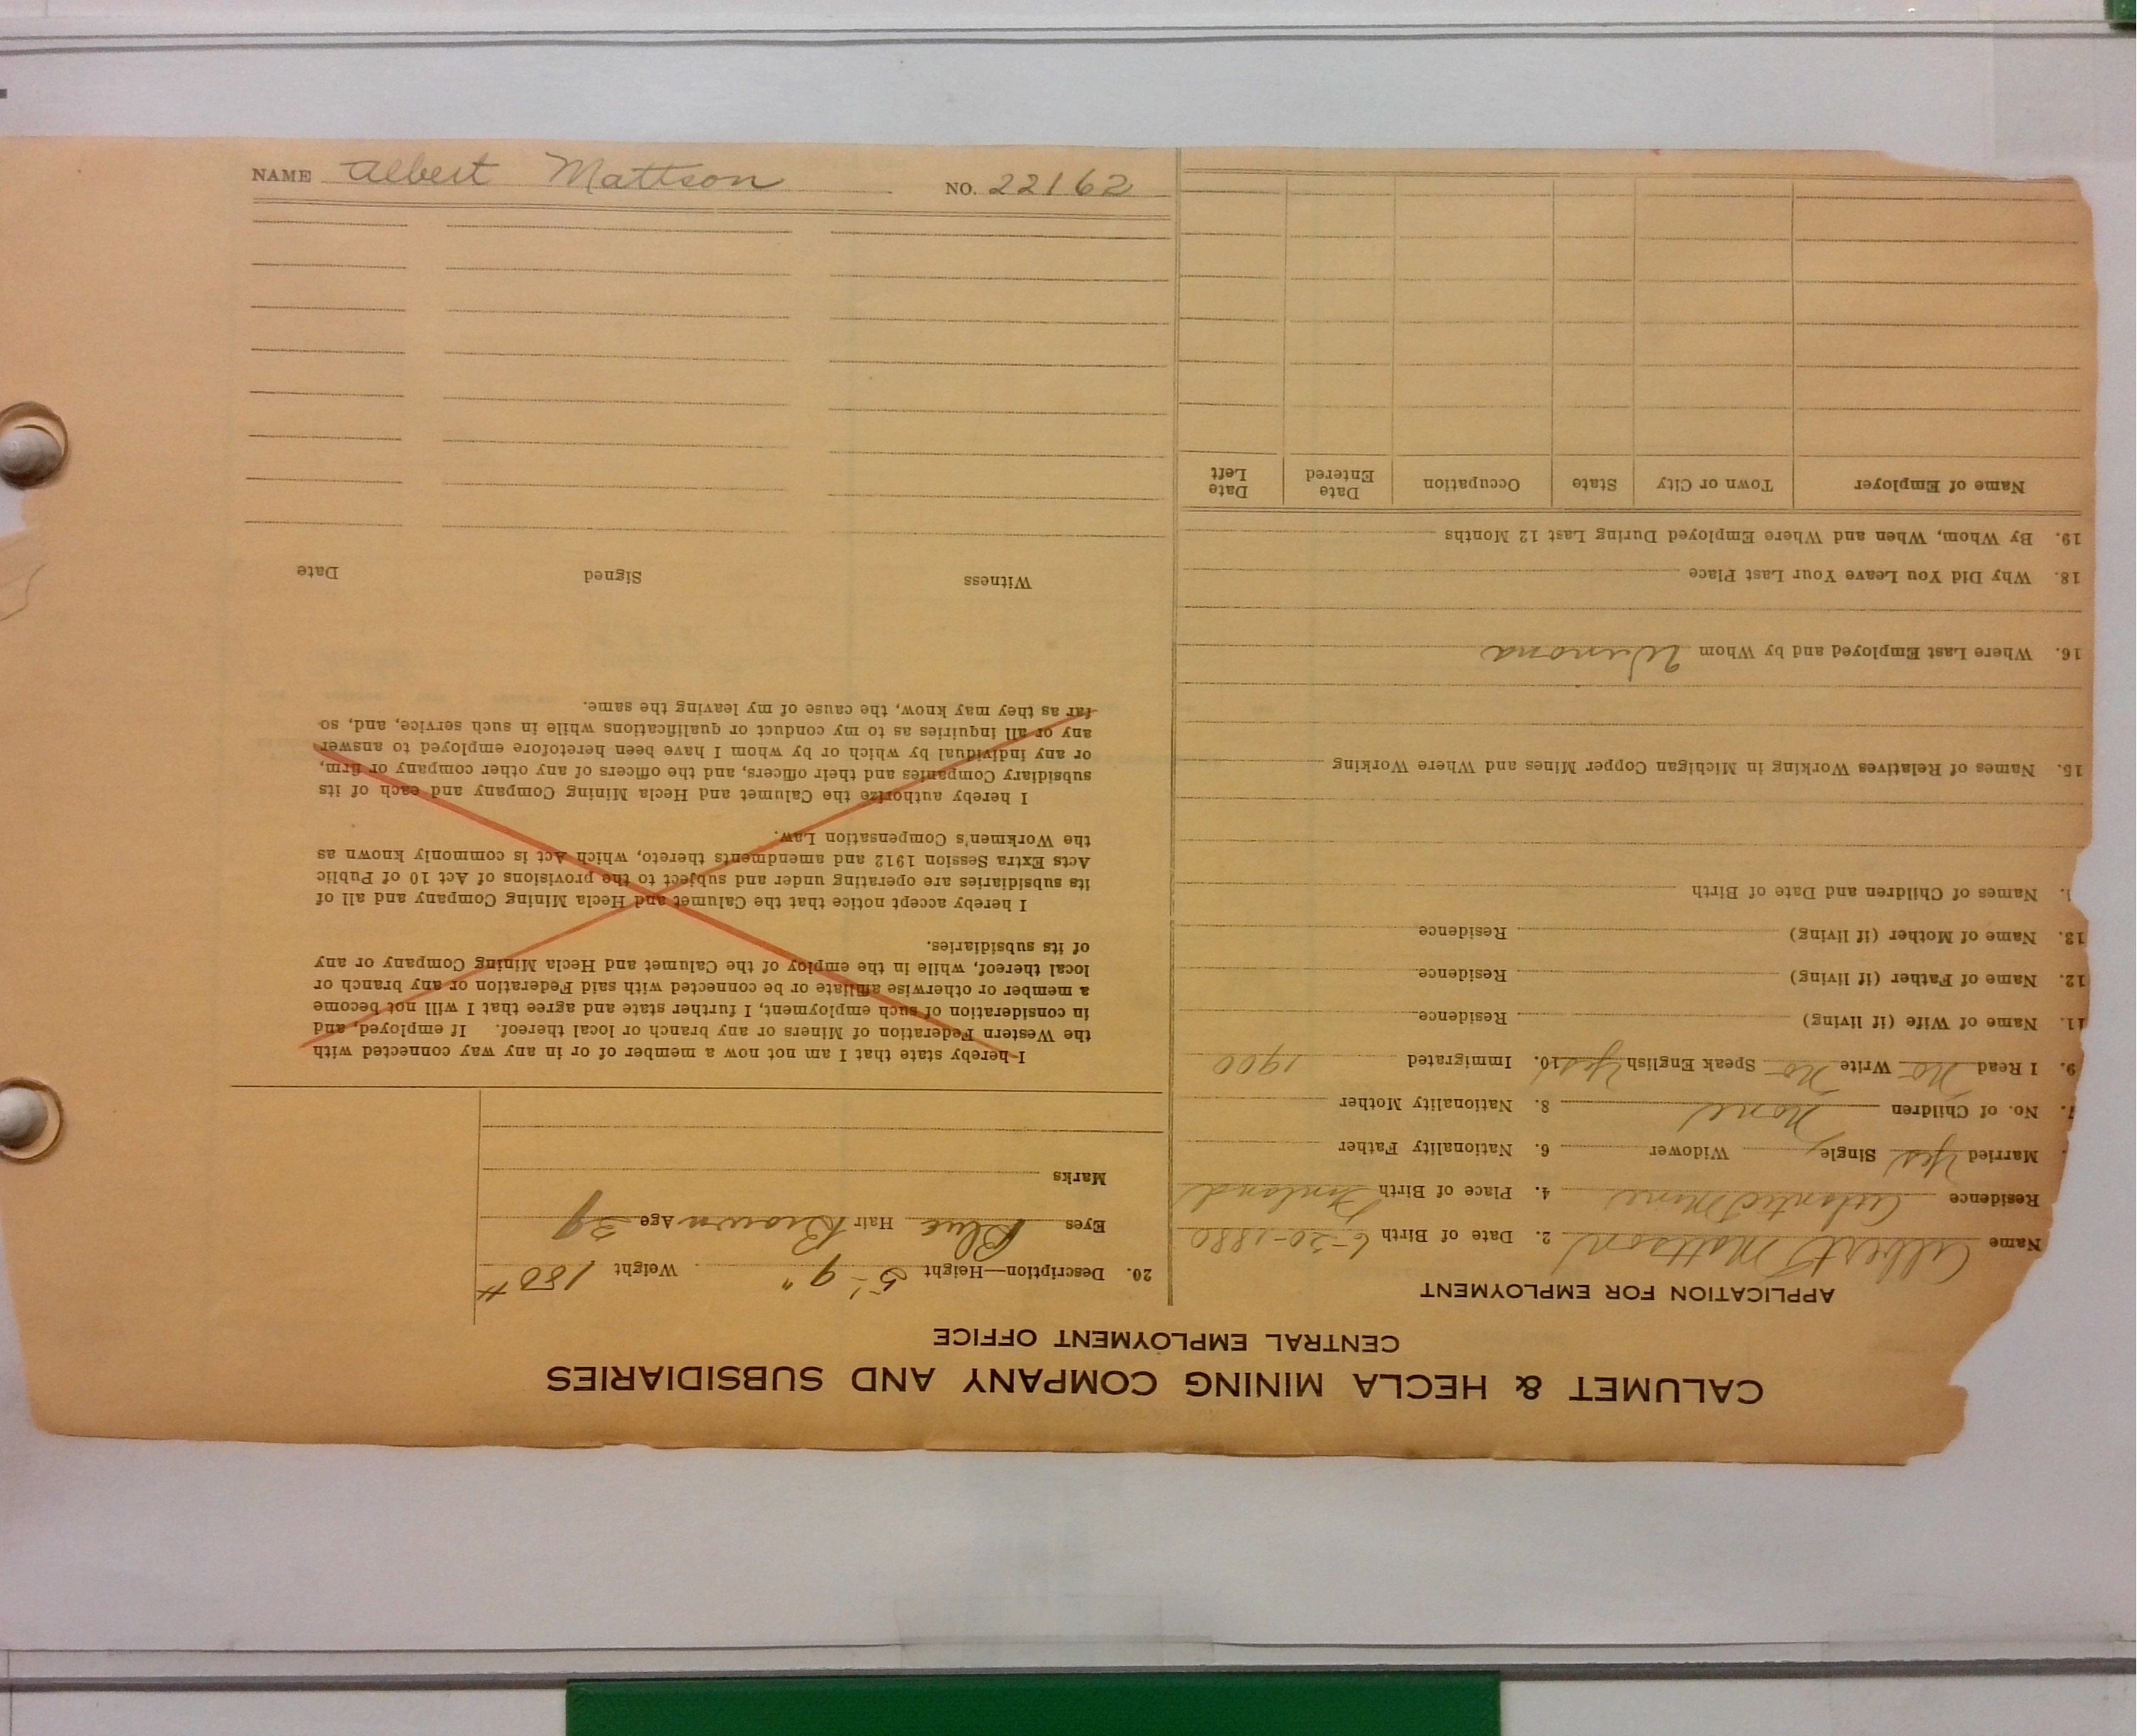 CALUMET & HECLA MINING COMPANY AND SUBSIDIARIES
CENTRAL EMPLOYMENT OFFICE
APPLICATION FOR EMPLOYMENT
Name Albert Mattson 2. Date of Birth 6-20-1880
Residence Atlantic Mine 4. Place of Birth Finland
Married Yes Single Widower 6. Nationality Father
7. No. of Children None 8. Nationality Mother
9. I Read No Write No Speak English Yes 10. Immigrated 1900
11. Name of Wife (if living) Residence
12. Name of Father (if living) Residence
13. Name of Mother (if living) Residence
Names of Children and Date of Birth
15. Names of Relatives Working in Michigan Copper Mines and Where Working
16. Where Last Employed and by Whom Winona
18. Why Did You Leave Your Last Place
19. By Whom, When and Where Employed During Last 12 Months
Name of Employer Town or City State Occupation Date Entered Date Left
20. Description—Height 5'-9" Weight 180#
Eyes Blue Hair Brown Age 39
Marks
I hereby state that I am not now a member of or in any way connected with
the Western Federation of Miners or any branch or local thereof. If employed, and
in consideration of such employment, I further state and agree that I will not become
a member or otherwise affiliate or be connected with said Federation or any branch or
local thereof, while in the employ of the Calumet and Hecla Mining Company or any
of its subsidiaries.
I hereby accept notice that the Calumet and Hecla Mining Company and all of
its subsidiaries are operating under and subject to the provisions of Act 10 of Public
Acts Extra Session 1912 and amendments thereto, which Act is commonly known as
the Workmen's Compensation Law.
I hereby authorize the Calumet and Hecla Mining Company and each of its
subsidiary Companies and their officers, and the officers of any other company or firm,
or any individual by which or by whom I have been heretofore employed to answer
any or all inquiries as to my conduct or qualifications while in such service, and, so
far as they may know, the cause of my leaving the same.
Witness Signed Date
NAME Albert Mattson NO. 22162